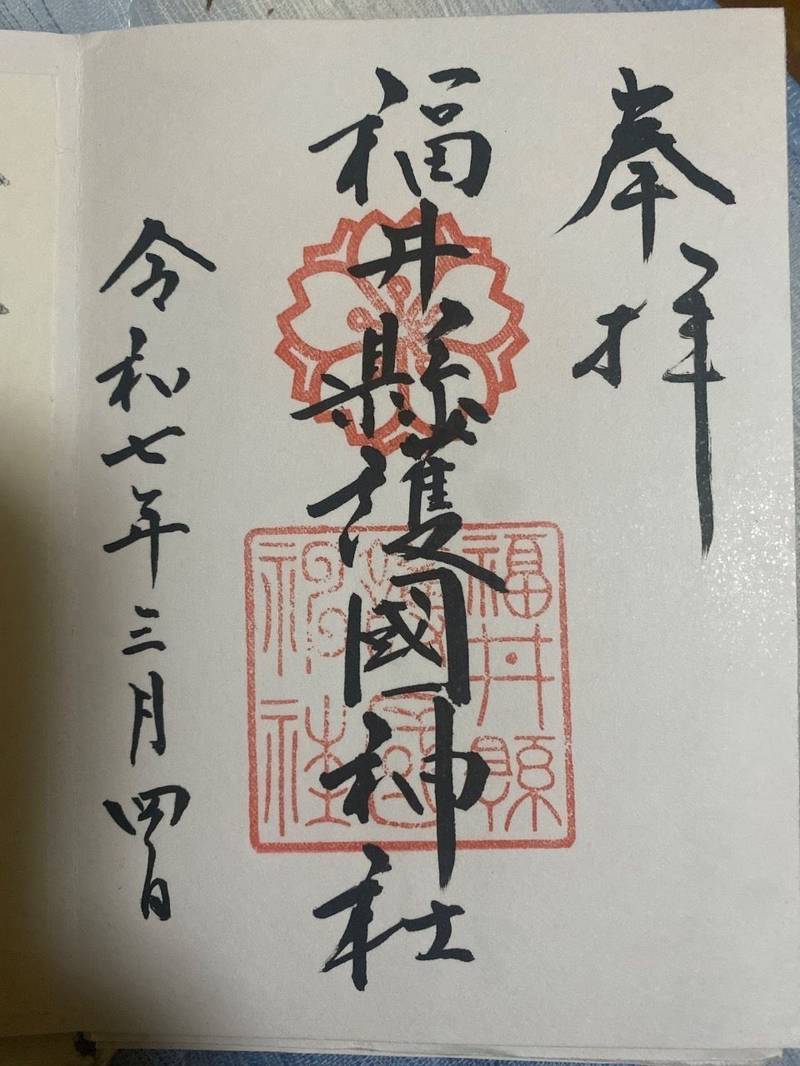 奉拝
福井縣護國神社
福井縣護國神社
令和七年三月四日